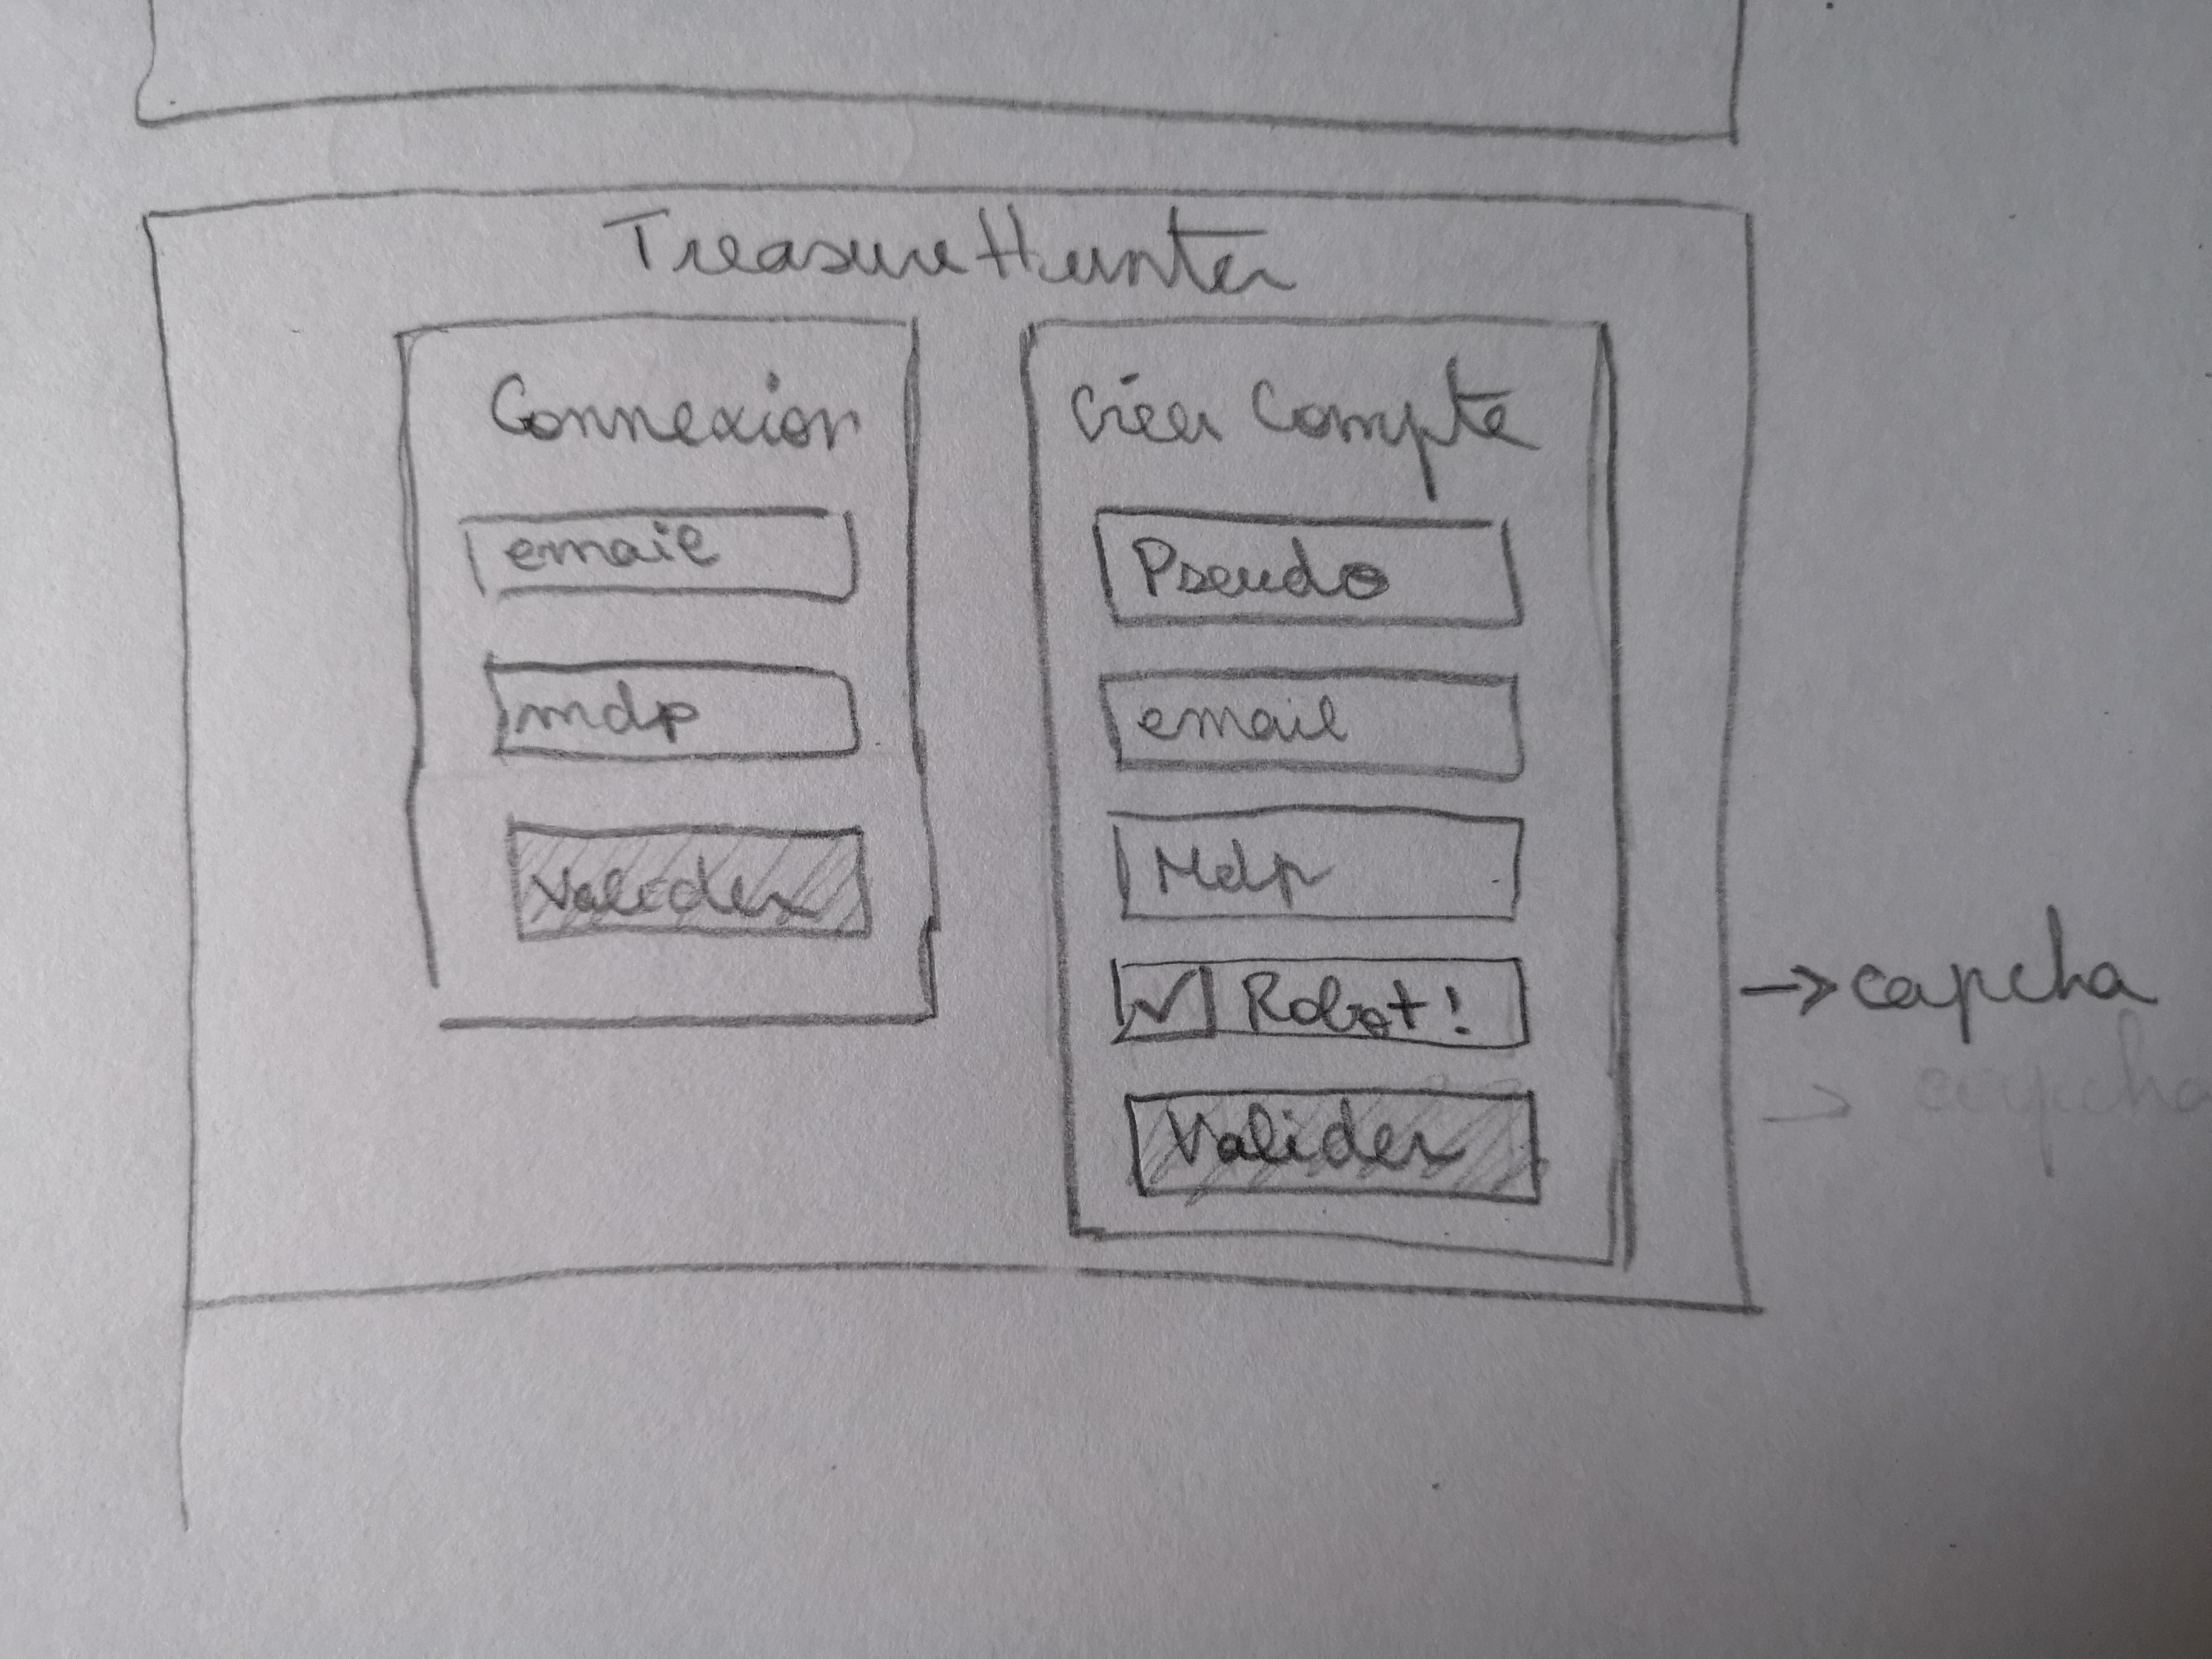 TreasureHunter
Connexion
email
mdp
Valider
Créer Compte
Pseudo
email
Mdp
Robot!
Valider
→ capcha
→ capcha